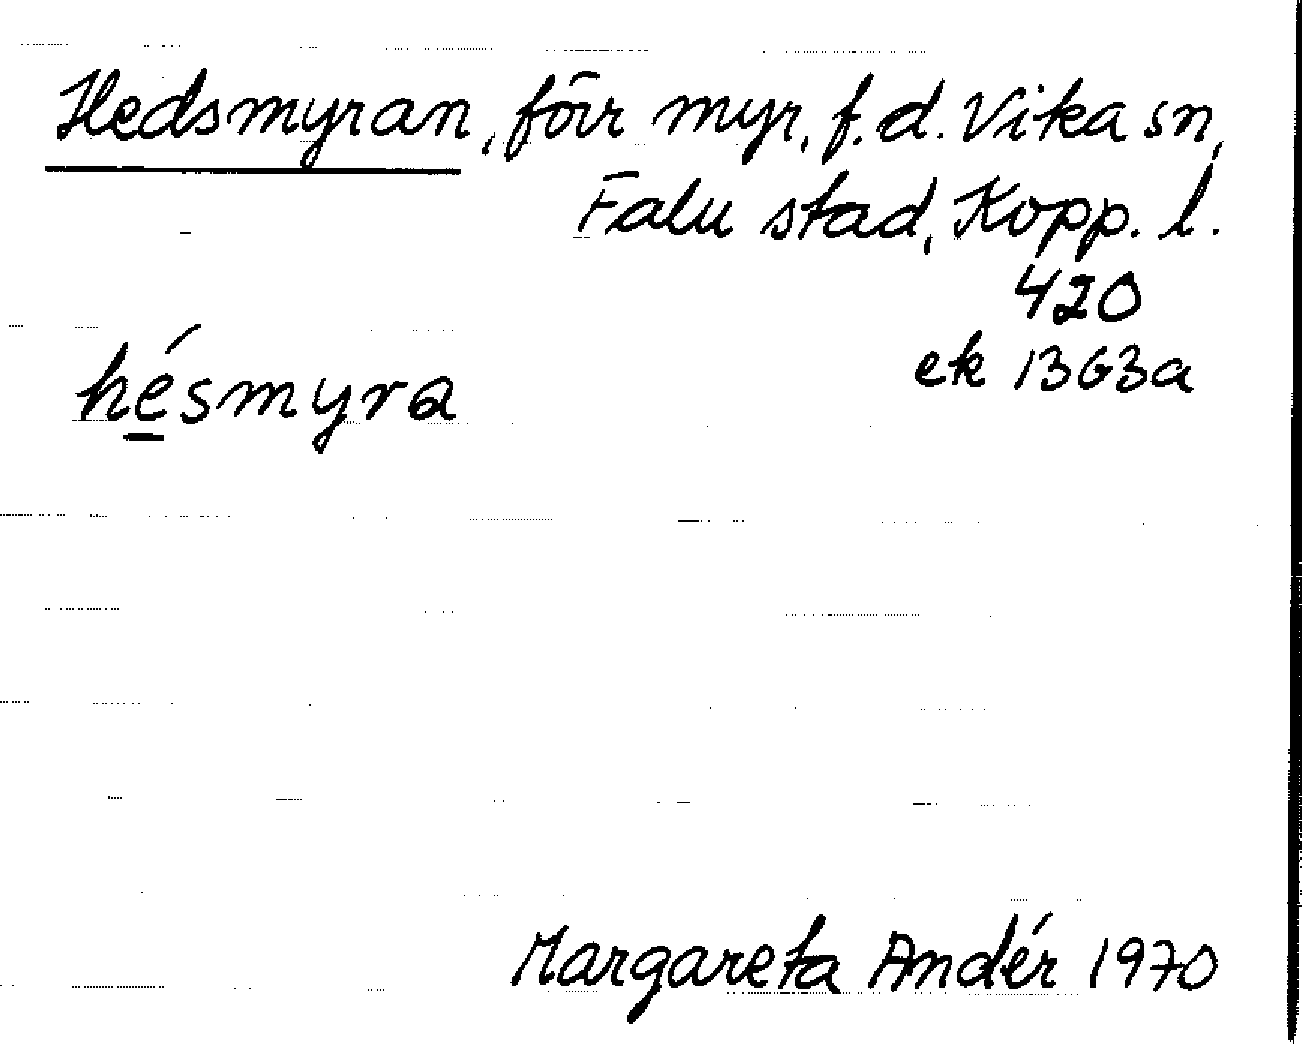 Hedsmyran, förr myr, f.d. Vika sn,
Falu stad, Kopp. l.
420
ek 1363a
hésmyra
Margareta Andér 1970